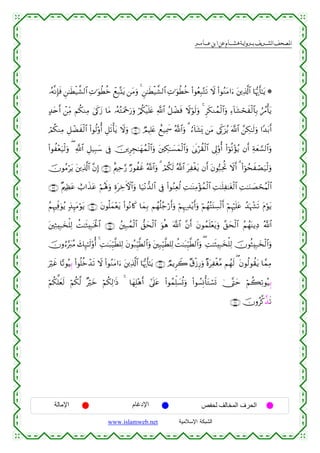 المصحف الشريف برواية هشام عن ابن عامر
* يَٰٓأَيُّهَا ٱلَّذِينَ ءَامَنُوا۟ لَا تَتَّبِعُوا۟ خُطُوَٰتِ ٱلشَّيْطَٰنِ ۚ وَمَن يَتَّبِعْ خُطُوَٰتِ ٱلشَّيْطَٰنِ فَإِنَّهُۥ
يَأْمُرُ بِٱلْفَحْشَآءِ وَٱلْمُنكَرِ ۚ وَلَوْلَا فَضْلُ ٱللَّهِ عَلَيْكُمْ وَرَحْمَتُهُۥ مَا زَكَىٰ مِنكُم مِّنْ أَحَدٍ
أَبَدًا وَلَٰكِنَّ ٱللَّهَ يُزَكِّى مَن يَشَآءُ ۗ وَٱللَّهُ سَمِيعٌ عَلِيمٌ وَلَا يَأْتَلِ أُو۟لُوا۟ ٱلْفَضْلِ مِنكُمْ
وَٱلسَّعَةِ أَن يُؤْتُوٓا۟ أُو۟لِى ٱلْقُرْبَىٰ وَٱلْمَسَٰكِينَ وَٱلْمُهَٰجِرِينَ فِى سَبِيلِ ٱللَّهِ ۖ وَلْيَعْفُوا۟
وَلْيَصْفَحُوٓا۟ ۗ أَلَا تُحِبُّونَ أَن يَغْفِرَ ٱللَّهُ لَكُمْ ۗ وَٱللَّهُ غَفُورٌ رَّحِيمٌ إِنَّ ٱلَّذِينَ يَرْمُونَ
ٱلْمُحْصَنَٰتِ ٱلْغَٰفِلَٰتِ ٱلْمُؤْمِنَٰتِ لُعِنُوا۟ فِى ٱلدُّنْيَا وَٱلْءَاخِرَةِ وَلَهُمْ عَذَابٌ عَظِيمٌ
يَوْمَ تَشْهَدُ عَلَيْهِمْ أَلْسِنَتُهُمْ وَأَيْدِيهِمْ وَأَرْجُلُهُم بِمَا كَانُوا۟ يَعْمَلُونَ يَوْمَئِذٍ يُوَفِّيهِمُ
ٱللَّهُ دِينَهُمُ ٱلْحَقَّ وَيَعْلَمُونَ أَنَّ ٱللَّهَ هُوَ ٱلْحَقُّ ٱلْمُبِينُ ٱلْخَبِيثَٰتُ لِلْخَبِيثِينَ
وَٱلْخَبِيثُونَ لِلْخَبِيثَٰتِ ۖ وَٱلطَّيِّبَٰتُ لِلطَّيِّبِينَ وَٱلطَّيِّبُونَ لِلطَّيِّبَٰتِ ۚ أُو۟لَٰٓئِكَ مُبَرَّءُونَ
مِمَّا يَقُولُونَ ۖ لَهُم مَّغْفِرَةٌ وَرِزْقٌ كَرِيمٌ يَٰٓأَيُّهَا ٱلَّذِينَ ءَامَنُوا۟ لَا تَدْخُلُوا۟ بِيُوتًا غَيْرَ
بِيُوتِكُمْ حَتَّىٰ تَسْتَأْنِسُوا۟ وَتُسَلِّمُوا۟ عَلَىٰٓ أَهْلِهَا ۚ ذَٰلِكُمْ خَيْرٌ لَّكُمْ لَعَلَّكُمْ
تَذَّكَّرُونَ
الحرف المخالف لحفص الإدغام الإمالة
الشبكة الإسلامية www.islamweb.net